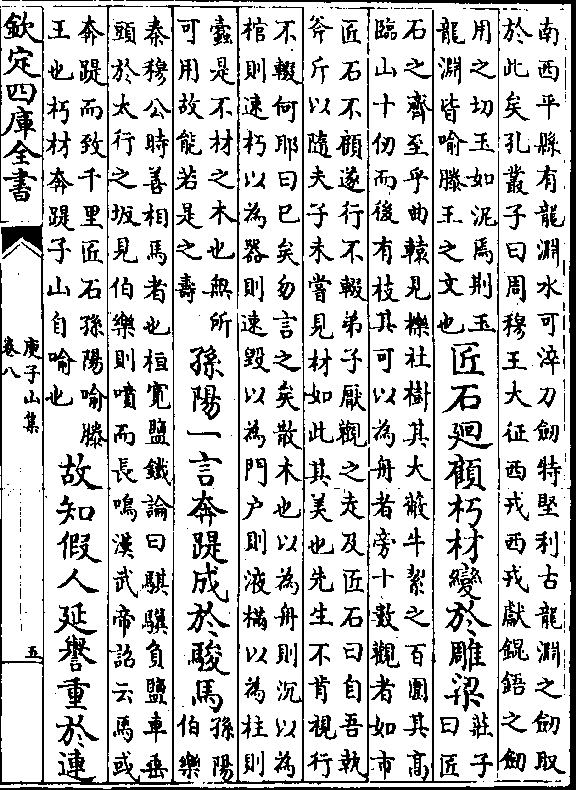 南西平縣有龍淵水可淬刀劔特堅利古龍淵之劔取
於此矣孔叢子曰周穆王大征西戎西戎獻錕鋙之劔
用之切玉如泥焉荆玉
龍淵皆喻滕王之文也
匠石廻顧朽材變於雕梁
莊子
曰匠
石之齊至乎曲轅見櫟社樹其大蔽牛絜之百圍其高
臨山十仞而後有枝其可以為舟者旁十數觀者如市
匠石不顧遂行不輟弟子厭觀之走及匠石曰自吾執
斧斤以隨夫子未嘗見材如此其美也先生不肯視行
不輟何耶曰已矣勿言之矣散木也以為舟則沉以為
棺則速朽以為器則速毁以為門户則液樠以為柱則
蠹是不材之木也無所
可用故能若是之壽
孫陽一言奔踶成於駿馬
孫陽
伯樂
秦穆公時善相馬者也桓寛鹽鐵論曰騏驥負鹽車垂
頭於太行之坂見伯樂則噴而長鳴漢武帝詔云馬或
奔踶而致千里匠石孫陽喻滕
王也朽材奔踶子山自喻也
故知假人延譽重於連
欽定四庫全書
庾子山集
卷八
五